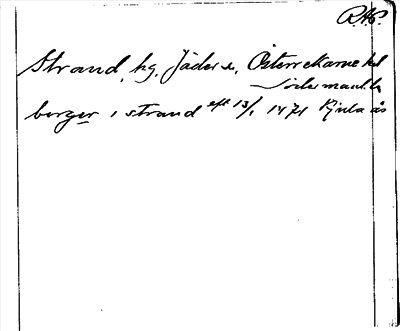 R.A.P.
Strand, hg. Jäder s, Österrekarne hd
Södermanl. l.
berger i strand eft 13/1 1471 Kjula ås